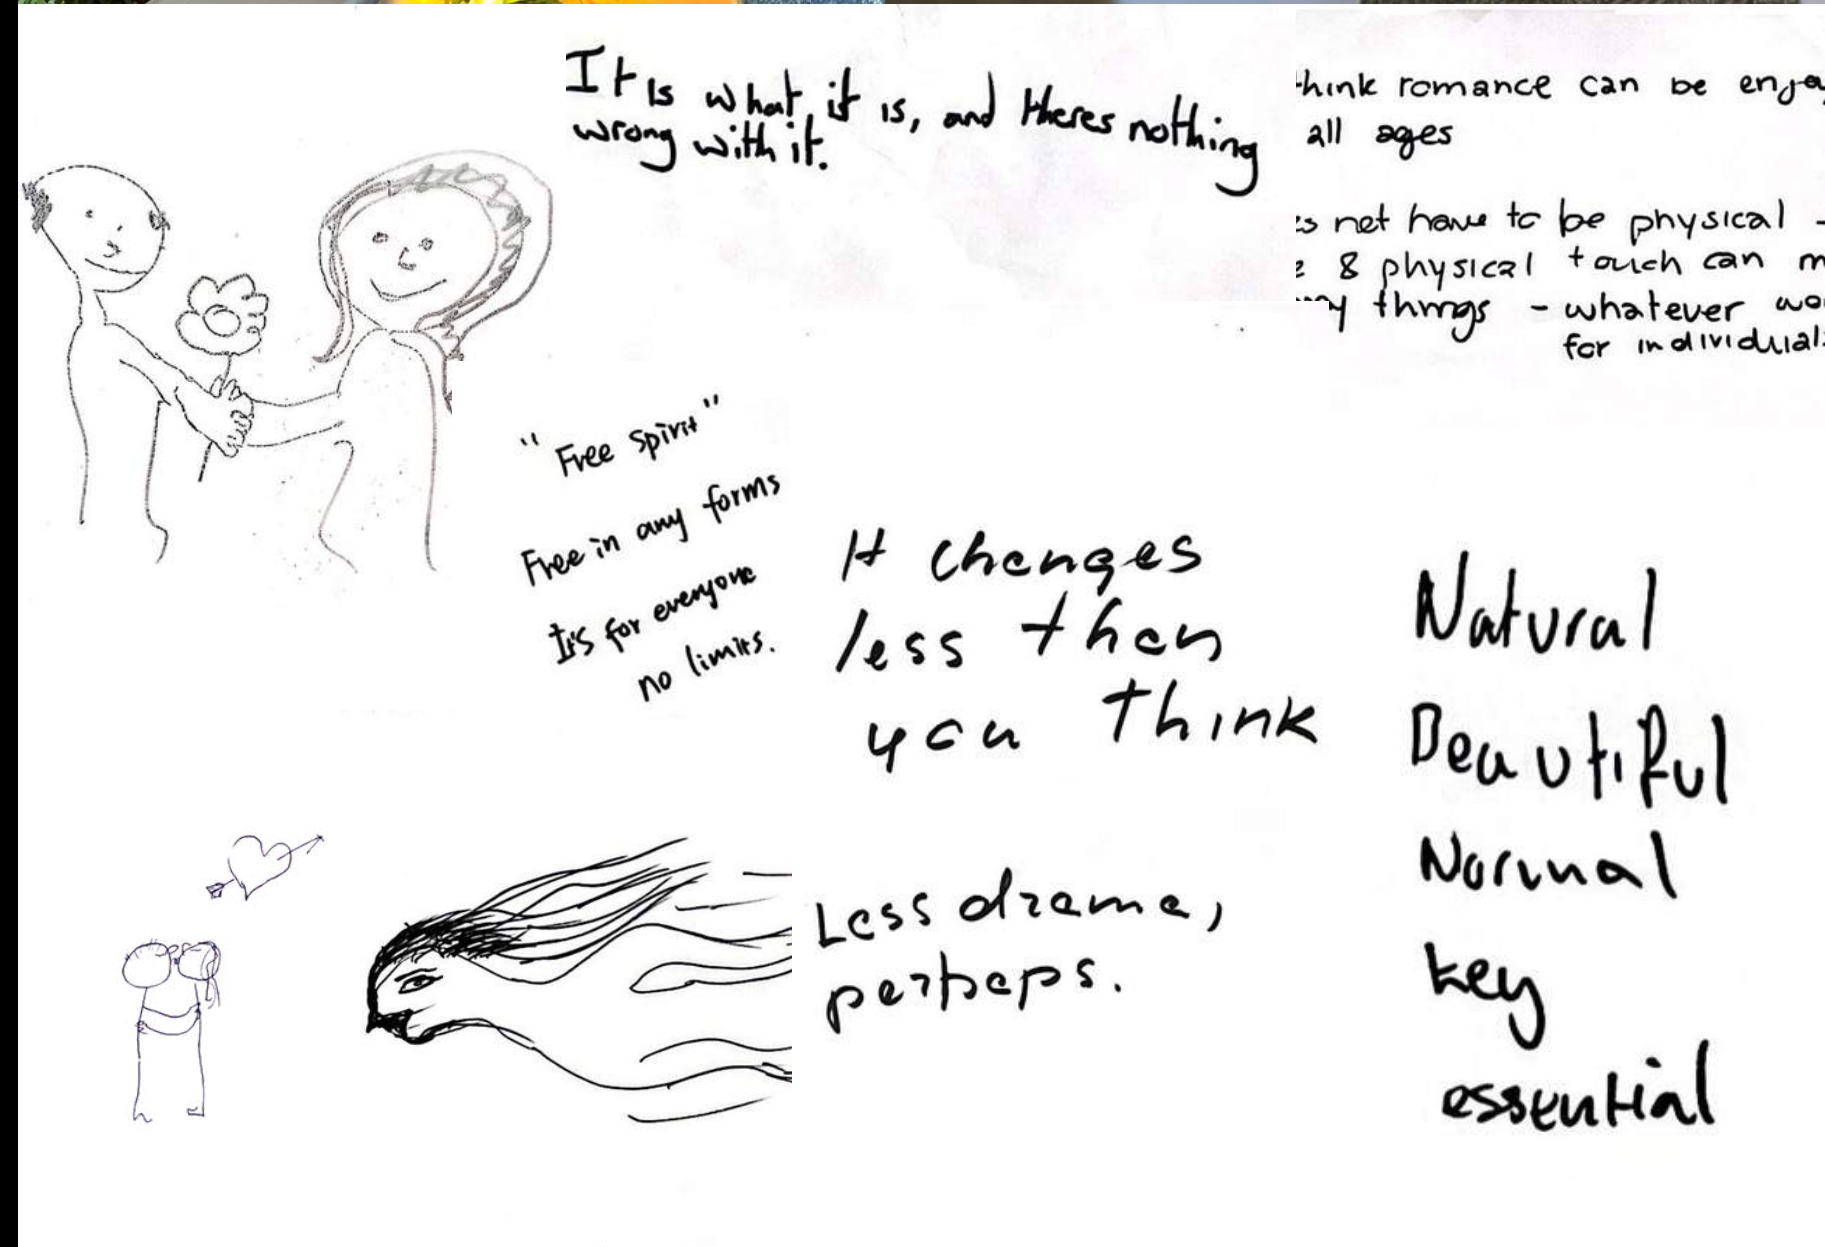 It is what it is, and theres nothing
wrong with it.
think romance can be
all ages
not have to be physical -
& physical touch can
things - whatever
for individuals
"Free spirit"
Free in any forms
It's for everyone
no limits.
It changes
less than
you think
Less drama,
perhaps.
Natural
Beautiful
Normal
key
essential